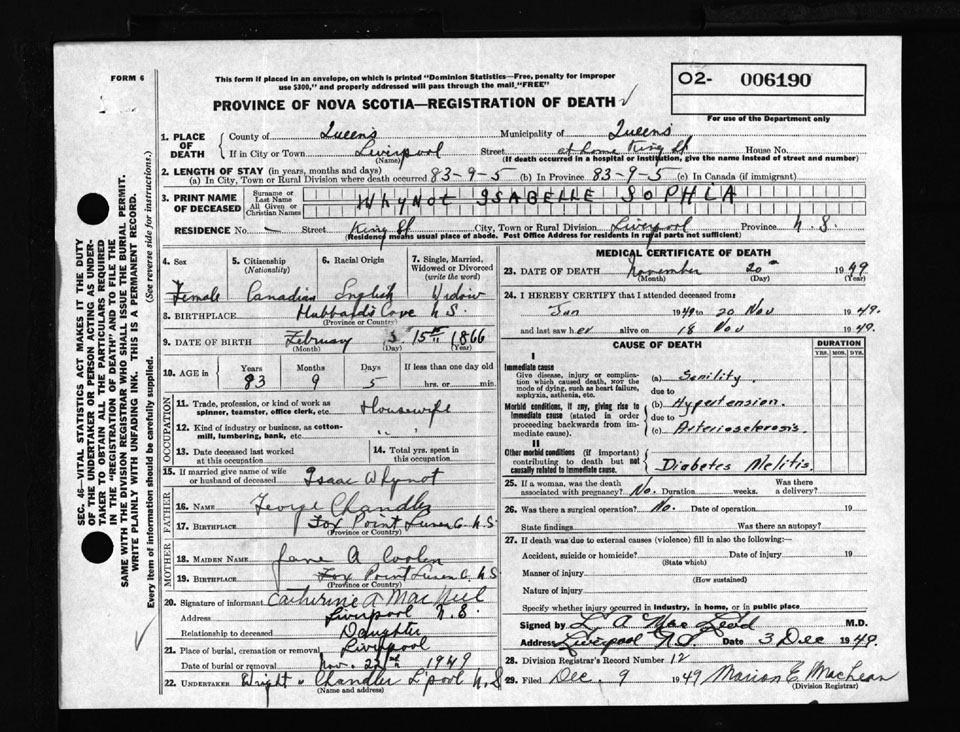 FORM 6
This form if placed in an envelope, on which is printed "Dominion Statistics—Free, penalty for improper
use $300," and properly addressed will pass through the mail "FREE"
O2- 006190
For use of the Department only
PROVINCE OF NOVA SCOTIA—REGISTRATION OF DEATH
1. PLACE OF DEATH { County of Queens Municipality of Queens
If in City or Town Liverpool Street at home King St House No.
(Name) (If death occurred in a hospital or institution, give the name instead of street and number)
2. LENGTH OF STAY (in years, months and days)
(a) In City, Town or Rural Division where death occurred 83-9-5 (b) In Province 83-9-5 (c) In Canada (if immigrant)
3. PRINT NAME OF DECEASED { Surname or Last Name All Given or Christian Names WHYNOT ISABELLE SOPHIA
RESIDENCE No. — Street King St City, Town or Rural Division Liverpool Province N.S.
(Residence means usual place of abode. Post Office Address for residents in rural parts not sufficient)
4. Sex Female
5. Citizenship (Nationality) Canadian
6. Racial Origin English
7. Single, Married, Widowed or Divorced (write the word) Widow
8. BIRTHPLACE Hubbards Cove N.S.
(Province or Country)
9. DATE OF BIRTH February 15th 1866
(Month) (Day) (Year)
10. AGE in { Years 83 Months 9 Days 5 If less than one day old
hrs. or min.
OCCUPATION
11. Trade, profession, or kind of work as spinner, teamster, office clerk, etc. Housewife
12. Kind of industry or business, as cotton-mill, lumbering, bank, etc. " "
13. Date deceased last worked at this occupation
14. Total yrs. spent in this occupation
15. If married give name of wife or husband of deceased Isaac Whynot
FATHER
16. Name George Chandler
17. Birthplace Fox Point Lunen C. N.S
(Province or Country)
MOTHER
18. Maiden Name Jane A Coolen
19. Birthplace Fox Point Lunen C. N.S
(Province or Country)
20. Signature of informant Catherine A MacNeil
Address Liverpool N.S.
Relationship to deceased Daughter
21. Place of burial, cremation or removal Liverpool
Date of burial or removal Nov. 22nd 1949
22. UNDERTAKER Wright & Chandler L'pool N.S
(Name and address)
MEDICAL CERTIFICATE OF DEATH
23. DATE OF DEATH November 20th 1949
(Month) (Day) (Year)
24. I HEREBY CERTIFY that I attended deceased from:
Jan 1949 to 20 Nov 1949.
and last saw her alive on 18 Nov 1949.
CAUSE OF DEATH DURATION
YRS. MOS. DYS.
I
Immediate cause
Give disease, injury or complication which caused death, NOT the mode of dying, such as heart failure, asphyxia, asthenia, etc.
(a) Senility.
due to
Morbid conditions, if any, giving rise to immediate cause (stated in order proceeding backwards from immediate cause).
(b) Hypertension.
due to
(c) Arteriosclerosis.
II
Other morbid conditions (if important) contributing to death but not causally related to immediate cause.
Diabetes Melitis
25. If a woman, was the death associated with pregnancy? No. Duration weeks. Was there a delivery?
26. Was there a surgical operation? No. Date of operation 19
State findings Was there an autopsy?
27. If death was due to external causes (violence) fill in also the following:—
Accident, suicide or homicide? Date of injury 19
(State which)
Manner of injury
(How sustained)
Nature of injury
Specify whether injury occurred in industry, in home, or in public place
Signed by L A MacLeod M.D.
Address Liverpool N.S. Date 3 Dec 1949.
28. Division Registrar's Record Number 12
29. Filed Dec. 9 1949 Marion E. MacLean
(Division Registrar)
SEC. 46—VITAL STATISTICS ACT MAKES IT THE DUTY
OF THE UNDERTAKER OR PERSON ACTING AS UNDER-
TAKER TO OBTAIN ALL THE PARTICULARS REQUIRED
IN THE "REGISTRATION OF DEATH" AND TO FILE THE
SAME WITH THE DIVISION REGISTRAR WHO SHALL ISSUE THE BURIAL PERMIT.
WRITE PLAINLY WITH UNFADING INK. THIS IS A PERMANENT RECORD.
Every item of information should be carefully supplied. (See reverse side for instructions.)